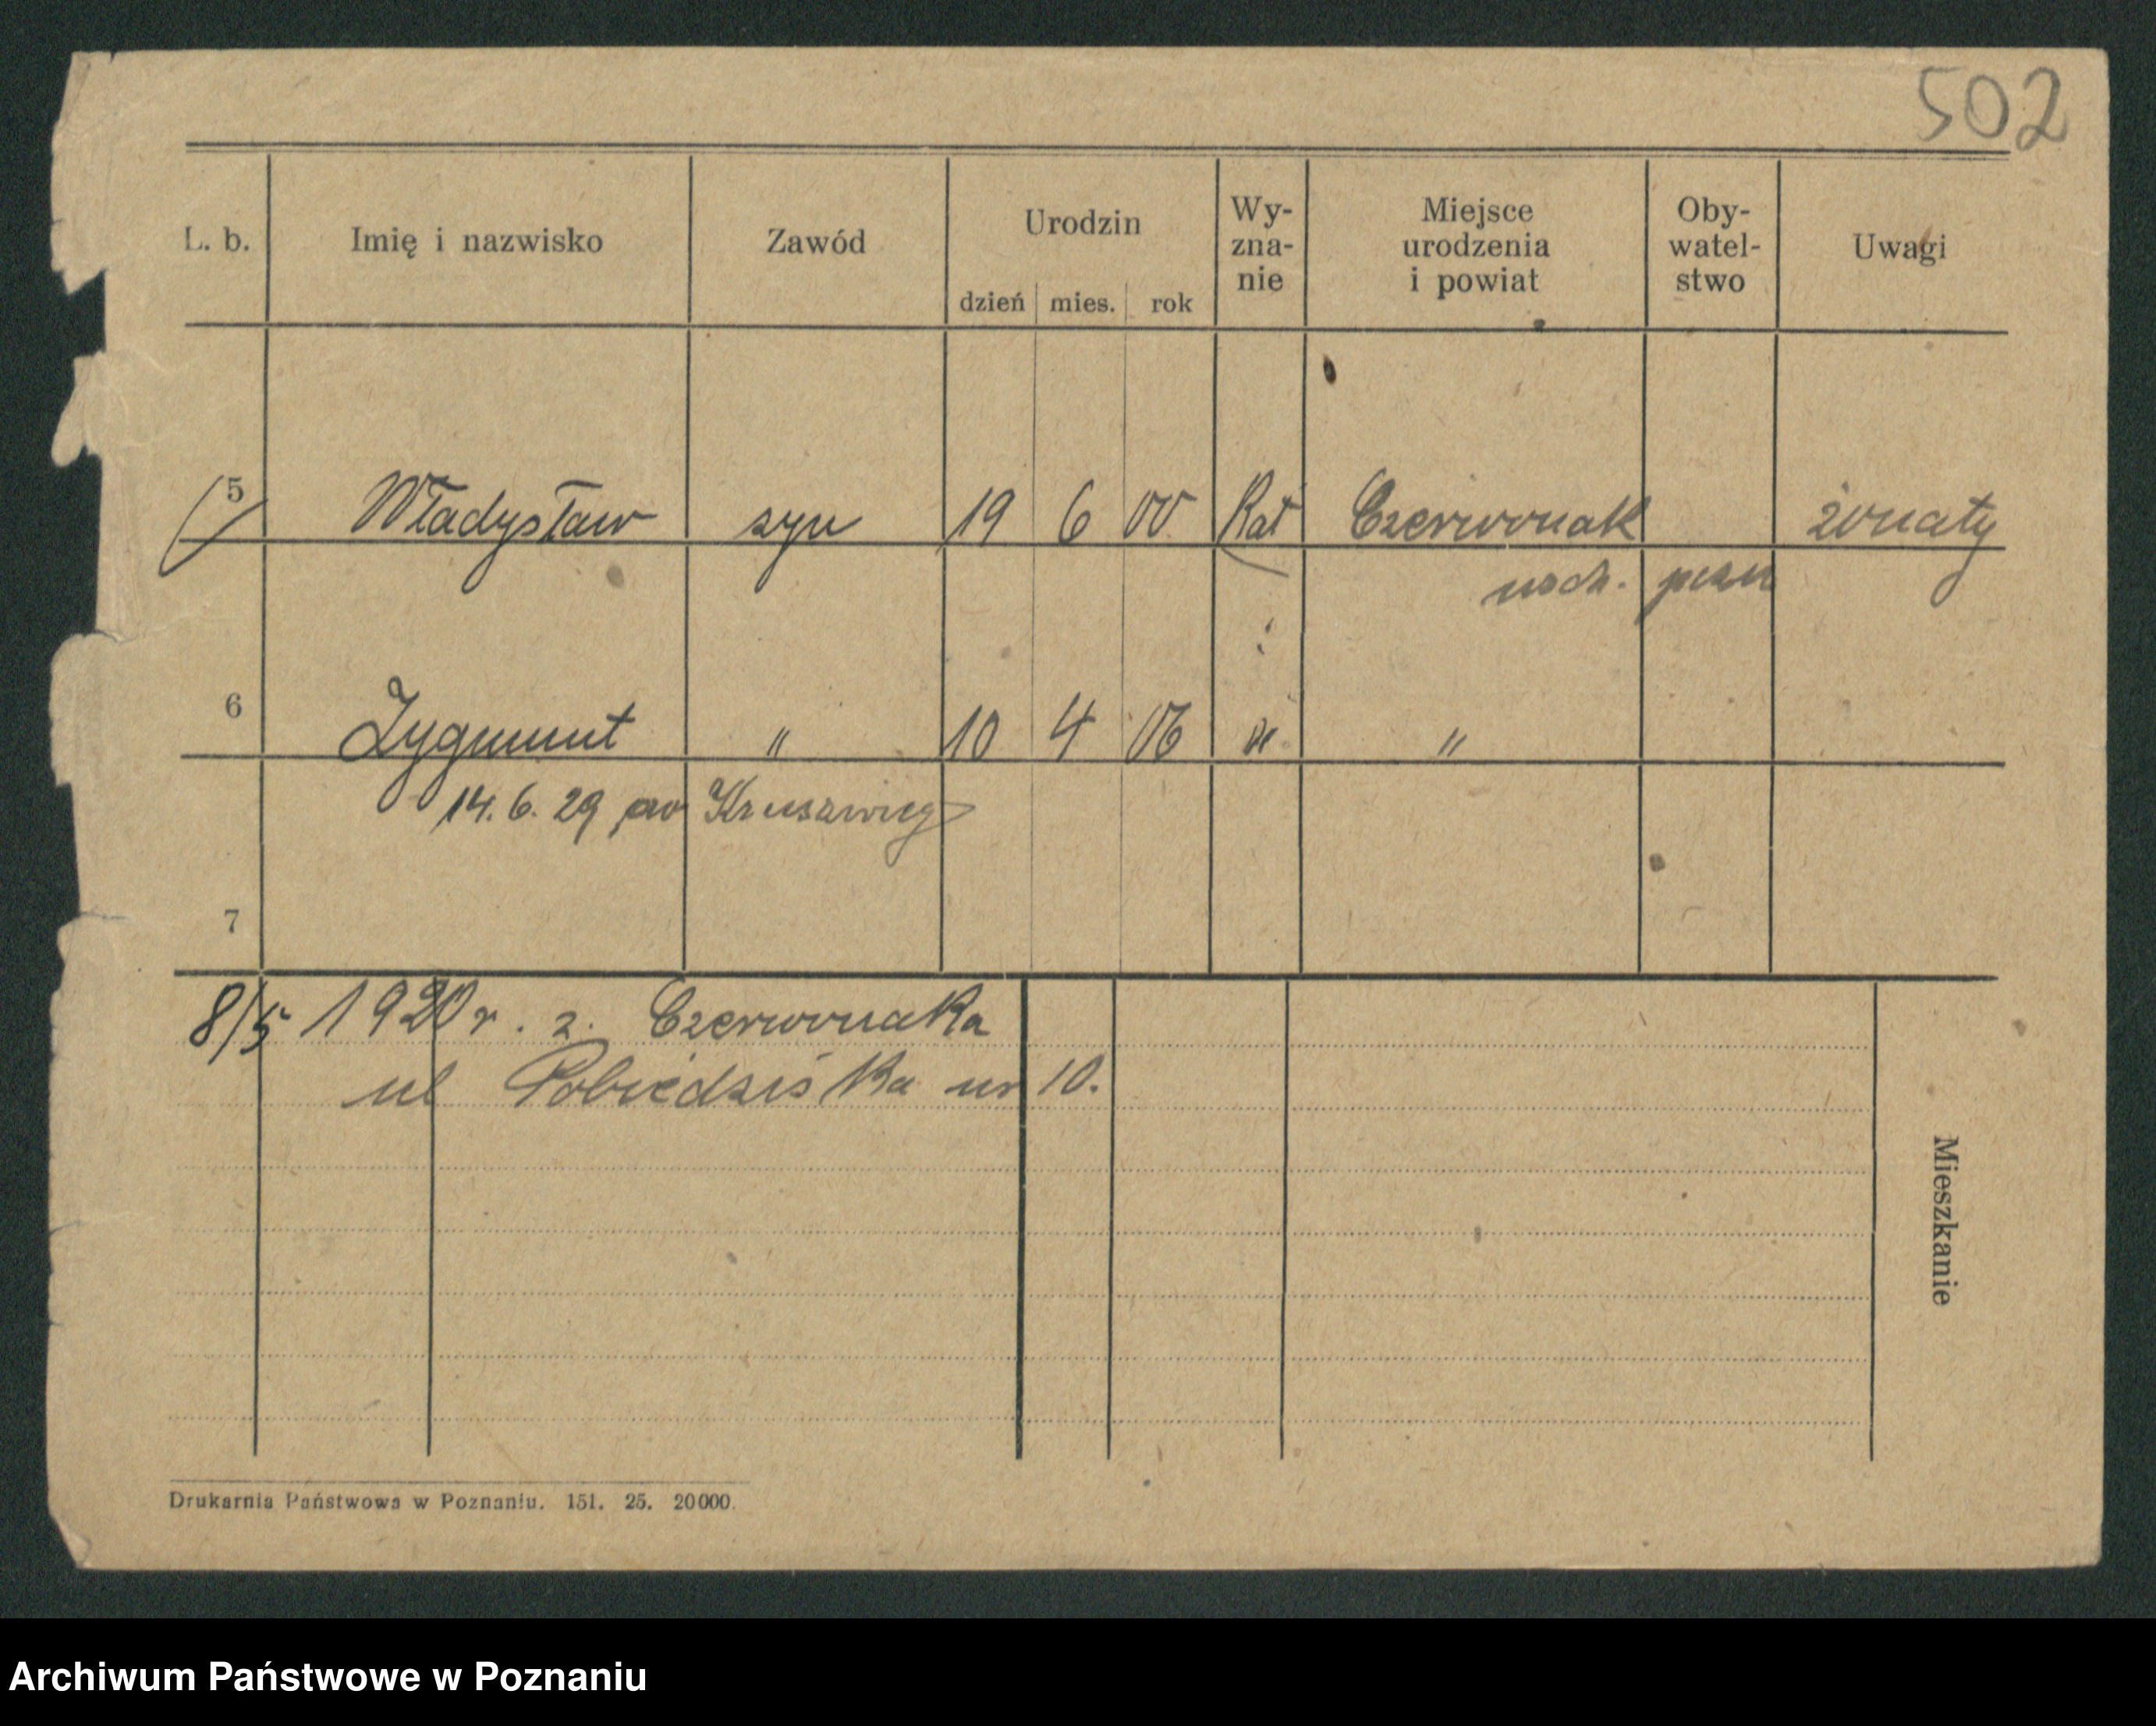 502
L. b. Imię i nazwisko Zawód Urodzin Wy- Miejsce Oby- Uwagi
zna- urodzenia watel-
nie i powiat stwo
dzień mies. rok
5 Władysław syn 19 6 00 Kat Czerwonak żonaty
wsch. pozn
6 Zygmunt " 10 4 06 " "
14. 6. 29 do Kruszwicy
7
8/5 1920 r. z. Czerwonaka
ul Pobiedziska nr 10.
Mieszkanie
Drukarnia Państwowa w Poznaniu. 151. 25. 20000.
Archiwum Państwowe w Poznaniu